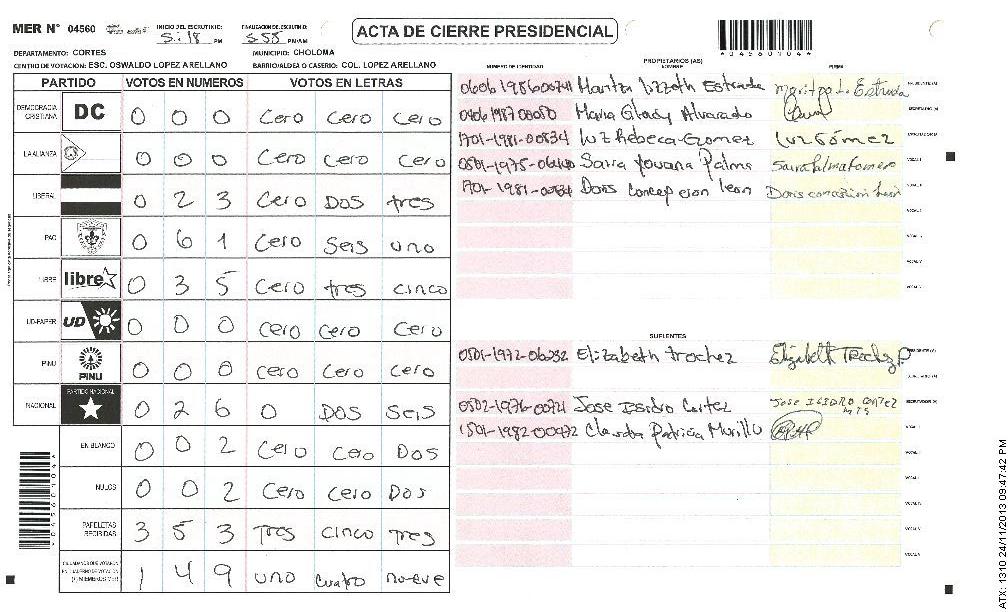 MER N° 04560 INICIO DEL ESCRUTINIO: 5:18 PM FINALIZACION DE ESCRUTINIO: 5:55 PM/AM
ACTA DE CIERRE PRESIDENCIAL
*04560104*
DEPARTAMENTO: CORTES MUNICIPIO: CHOLOMA
CENTRO DE VOTACION: ESC. OSWALDO LOPEZ ARELLANO BARRIO/ALDEA O CASERIO: COL. LOPEZ ARELLANO
PARTIDO VOTOS EN NUMEROS VOTOS EN LETRAS
DEMOCRACIA CRISTIANA DC 0 0 0 Cero Cero Cero
LA ALIANZA 0 0 0 Cero Cero Cero
LIBERAL 0 2 3 Cero DOS tres
PAC 0 6 1 Cero Seis uno
LIBRE libre 0 3 5 Cero tres cinco
UD-FAPER UD 0 0 0 Cero Cero Cero
PINU PINU 0 0 0 Cero Cero Cero
NACIONAL PARTIDO NACIONAL 0 2 6 0 DOS Seis
EN BLANCO 0 0 2 Cero Cero Dos
NULOS 0 0 2 Cero Cero Dos
PAPELETAS RECIBIDAS 3 5 3 Tres cinco tres
CIUDADANOS QUE VOTARON EN CUADERNO DE VOTACION (+) MIEMBROS MER) 1 4 9 uno cuatro nueve
PROPIETARIOS (AS)
NUMERO DE IDENTIDAD NOMBRE FIRMA
Maritza Lizzeth Estrada Maritza L. Estrada
Maria Glady Alvarado
1701-1981-00834 Luz Rebeca Gomez Luz Gómez
Sarra Yovana Palma
Doris Concepcion leon
SUPLENTES
0501-1972-06232 Elizabeth trochez Elizabeth Trochez P.
0502-1976-00721 Jose Isidro Cortez JOSE ISIDRO CORTEZ
1501-1982-00972 Claudia Patricia Murillo
ATX: 1310 24/11/2013 09:47:42 PM